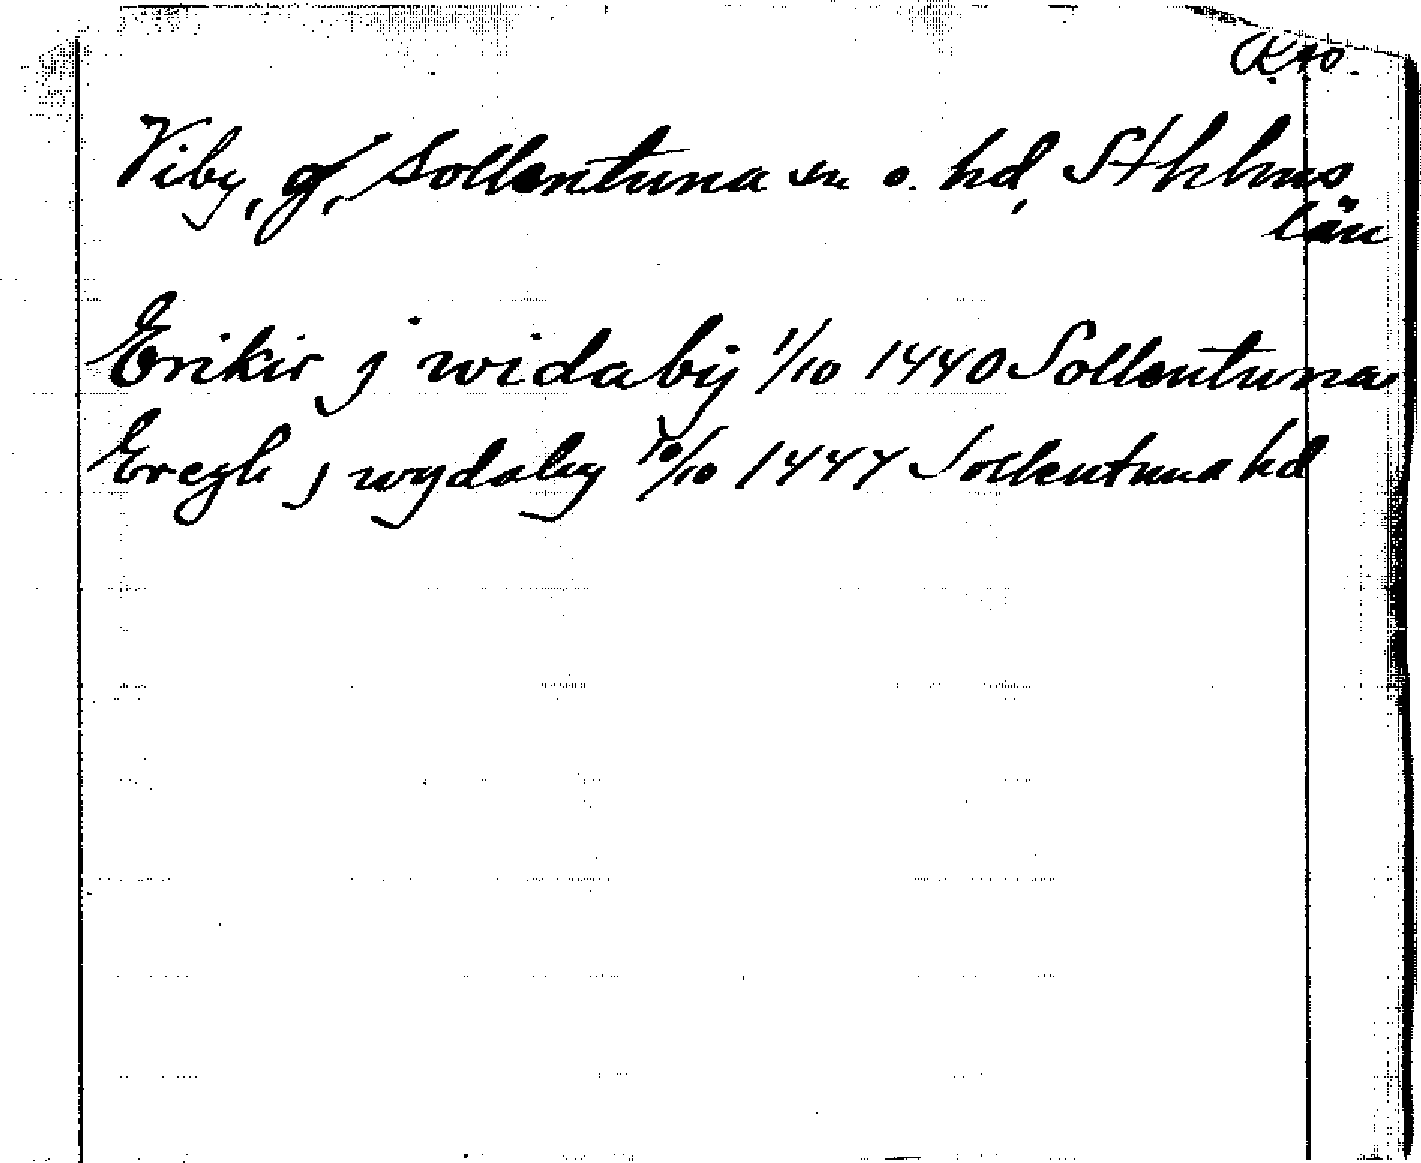 Viby, g, Sollentuna sn o. hd, Sthlms
län
Erikir j widaby 1/10 1440 Sollentuna
Eregh j wydaby 10/10 1447 Sollentuna hd